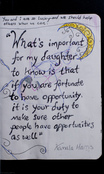 You and I are so lucky and we should help
others when we can.
"What's important
for my daughter
to know is that
if you are fortunate
to have opportunity
it is your duty to
make sure other
people have opportunities
as well"